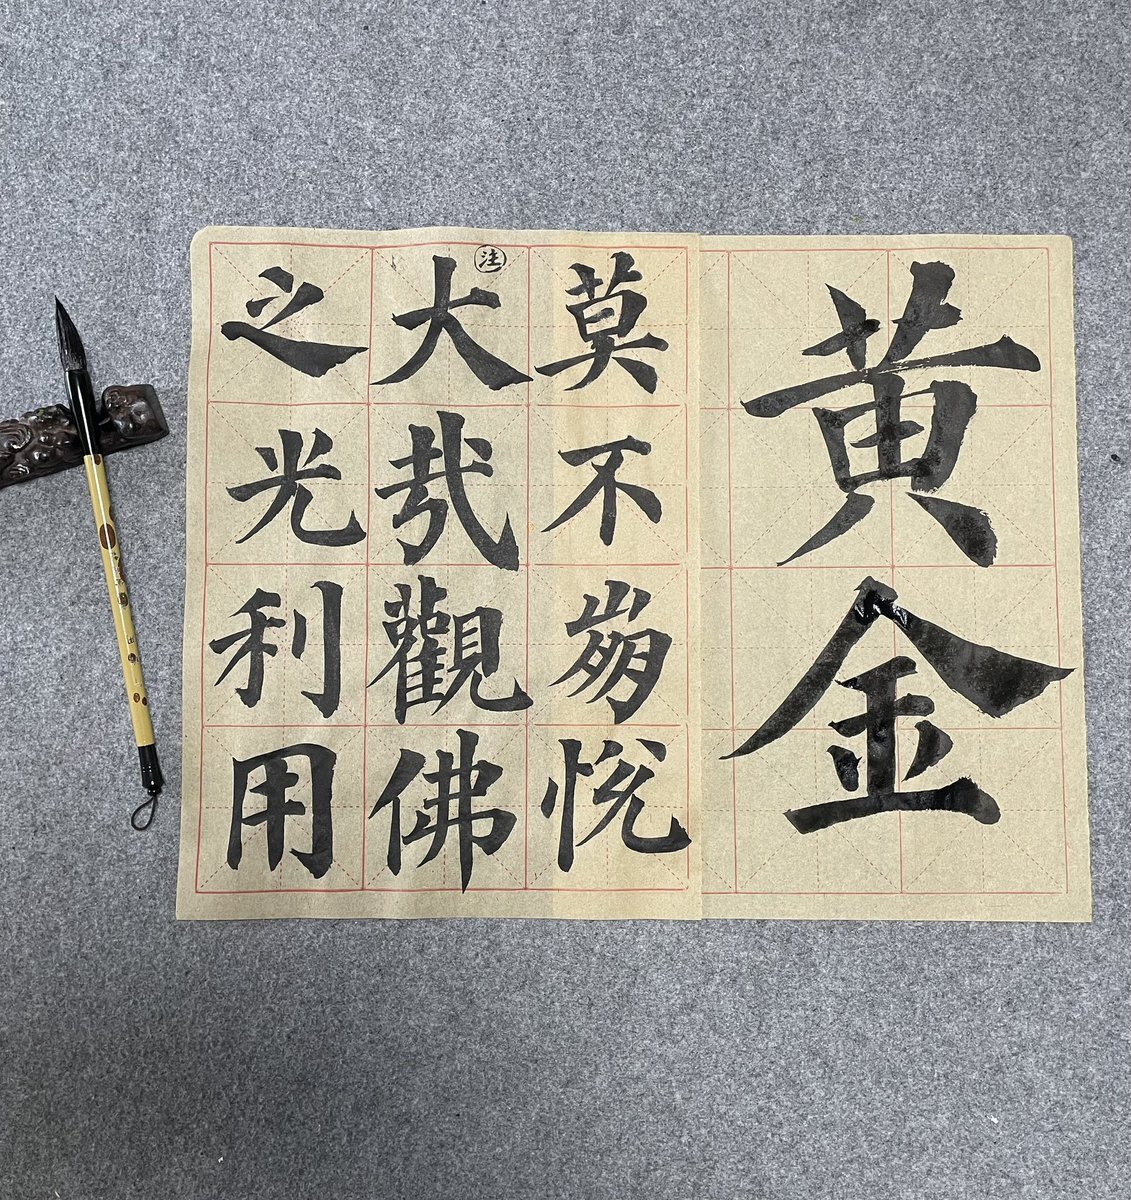 黄金
莫不崩悦
注
大哉觀佛
之光利用